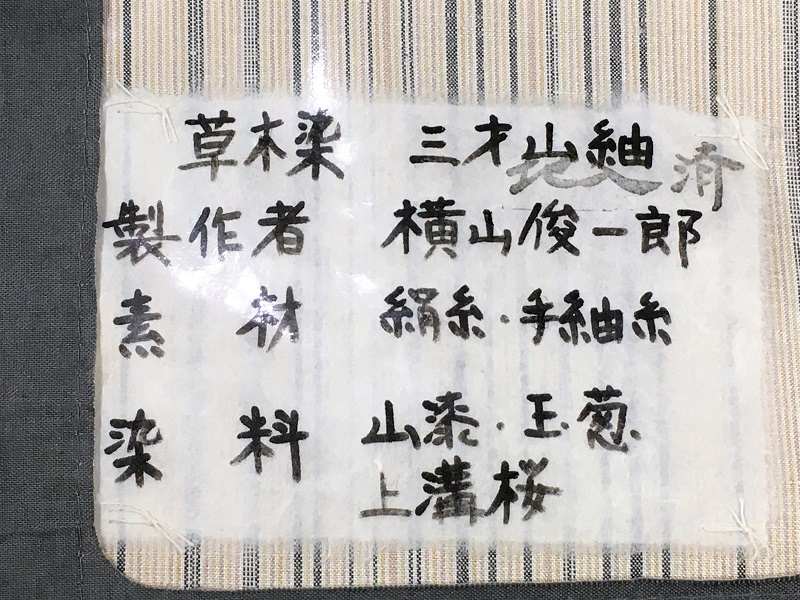 草木染 三才山紬
済
製作者 横山俊一郎
素材 絹糸・手紬糸
染料 山漆・玉葱
上溝桜